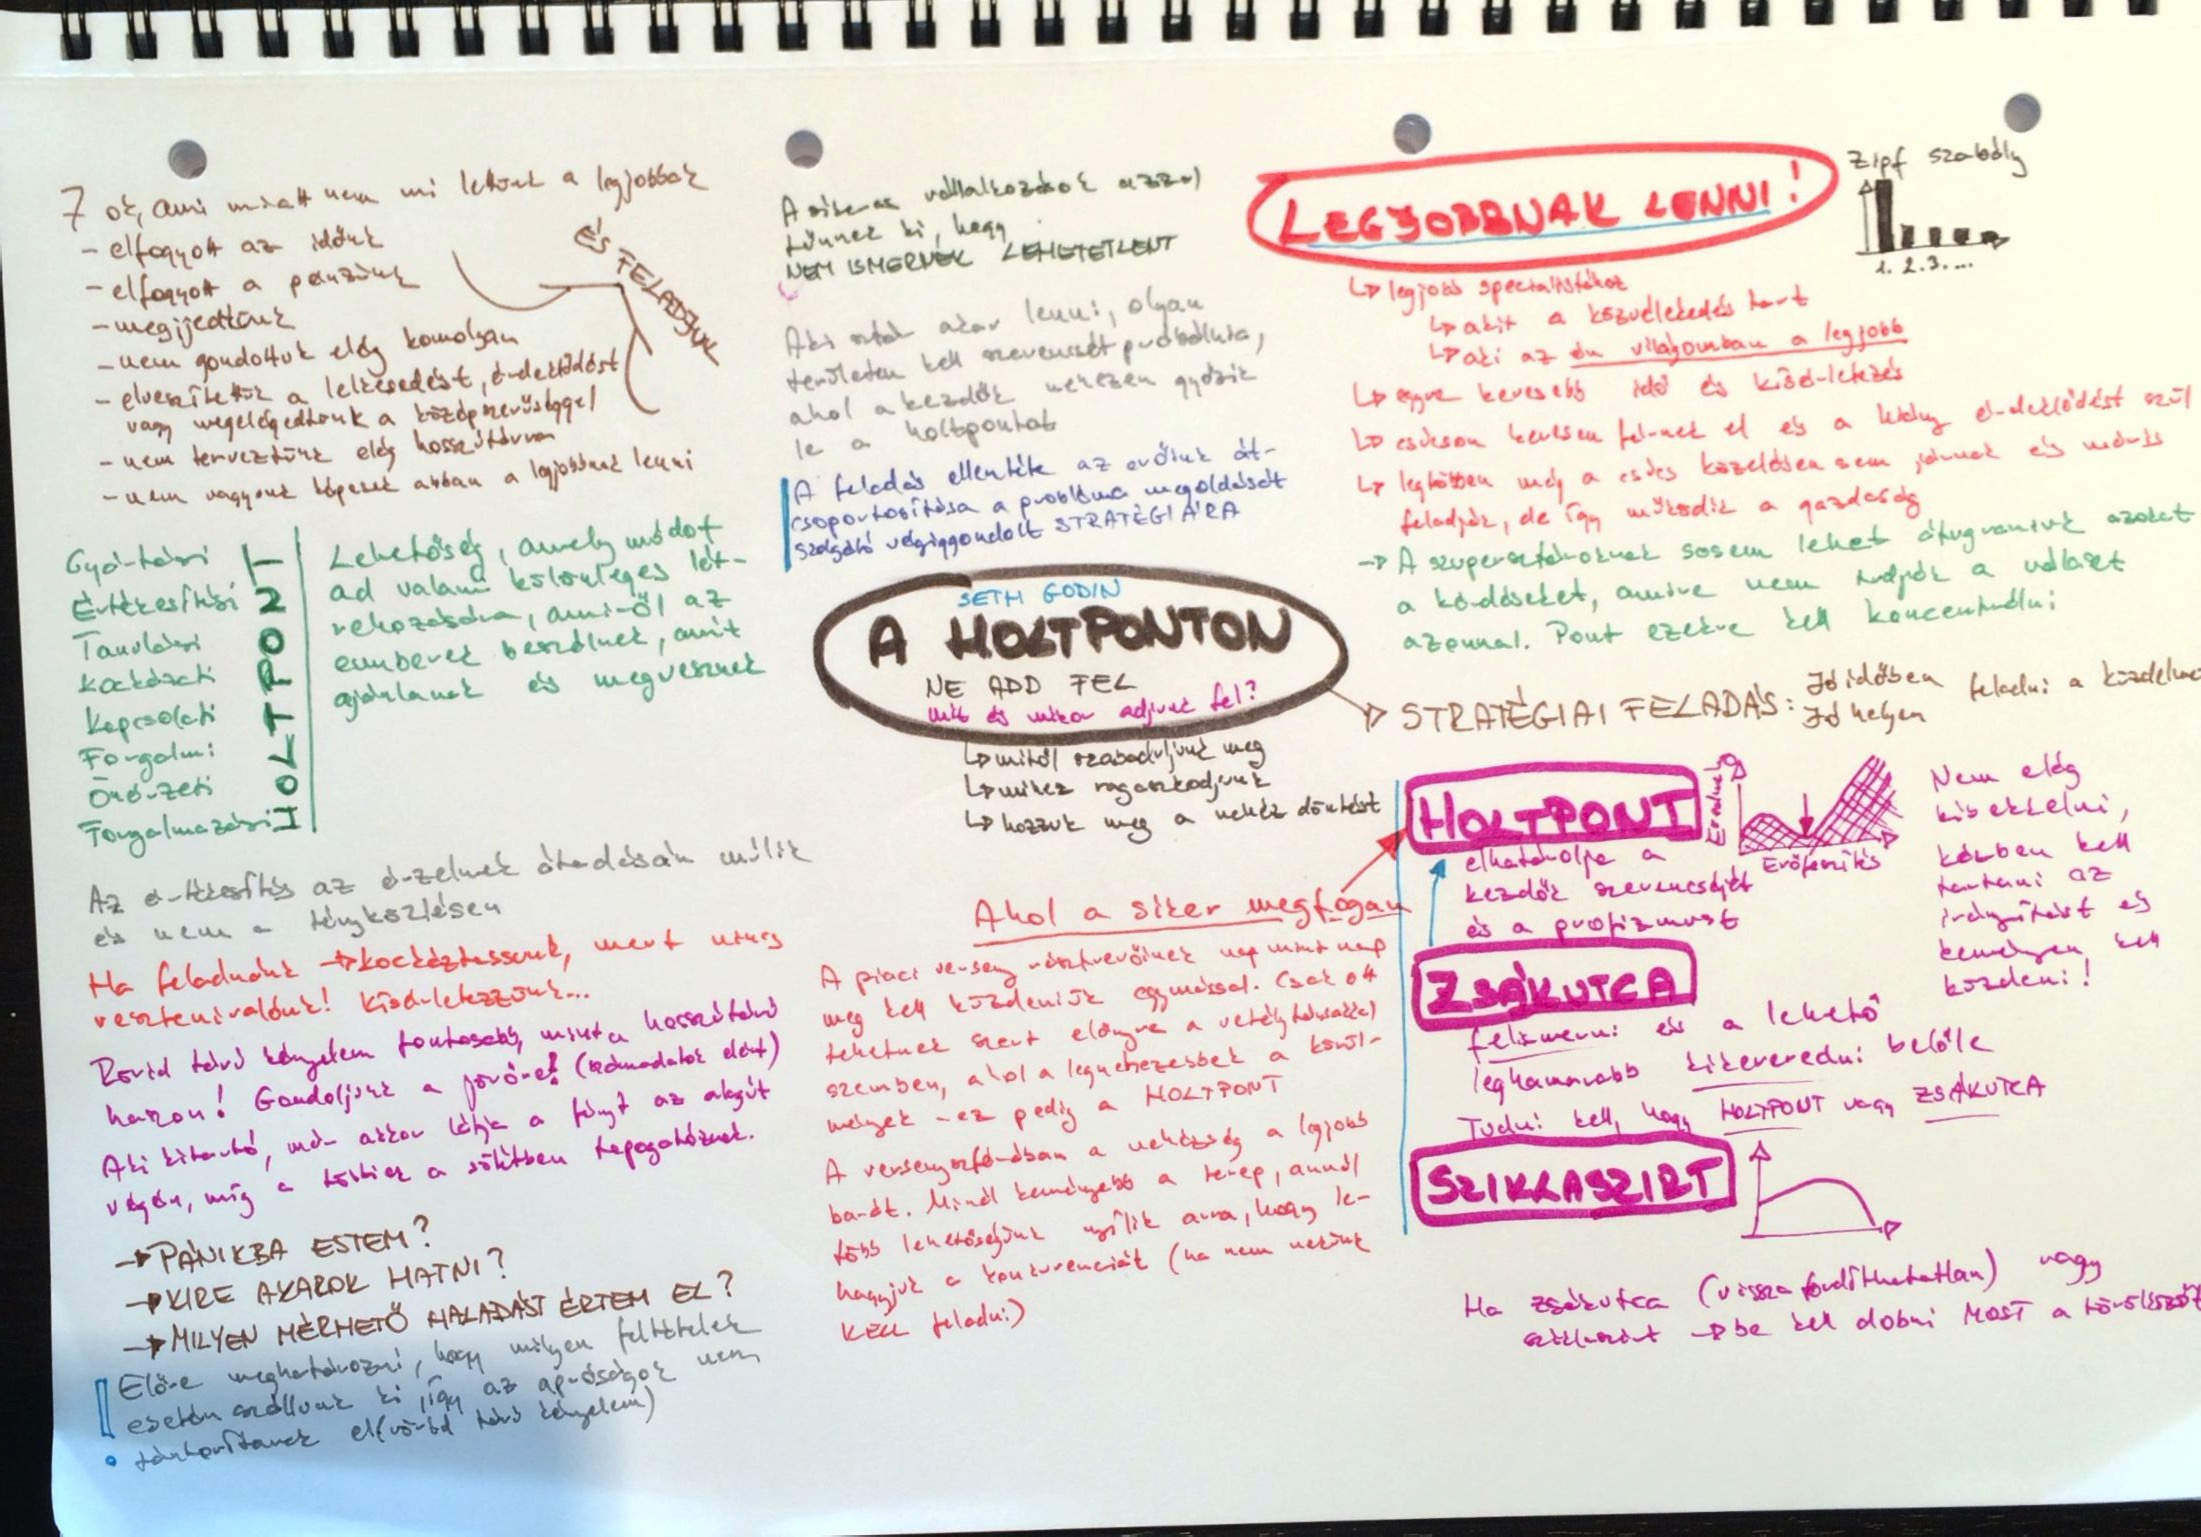 7 ok, ami miatt nem mi lettünk a legjobbak
- elfogyott az időnk
- elfogyott a pénzünk
- megijedtünk
- nem gondoltuk elég komolyan
- elveszítettük a lelkesedést, érdeklődést
vagy megelégedtünk a középszerűséggel
- nem terveztünk elég hosszútávra
- nem vagyunk képesek abban a legjobbnak lenni
ÉS FELADJUK
Gyártási
Értékesítési
Tanulási
Kockázati
Kapcsolati
Forgalmi
Önérzeti
Forgalmazási
HOLTPONT
Lehetőség, amely módot
ad valami különleges lét-
rehozására, amiről az
emberek beszélnek, amit
ajánlanak és megvesznek
Az értékesítés az érzelmek átadásán múlik
és nem a tényközlésen
Ha feladnánk → kockáztassunk, mert nincs
vesztenivalónk! Kísérletezzünk...
Rövid távú kényelem fontosabb, mint a hosszútávú
haszon! Gondoljunk a jövőre! (számadatok előtt)
Aki kitartó, már akkor látja a fényt az alagút
végén, míg a többiek a sötétben tapogatóznak.
→ PÁNIKBA ESTEM?
→ KIRE AKAROK HATNI?
→ MILYEN MÉRHETŐ HALADÁST ÉRTEM EL?
Előre meghatározni, hogy milyen feltételek
esetén szállunk ki, így az apróságok nem
tántorítanak el (rövid távú kényelem)
A sikeres vállalkozások azzal
tűnnek ki, hogy
NEM ISMERNEK LEHETETLENT
Aki sztár akar lenni, olyan
területen kell szerencsét próbálnia,
ahol a kezdők nehezen győzik
le a holtpontot
A feladás ellentéte az erőink át-
csoportosítása a probléma megoldását
szolgáló végiggondolt STRATÉGIÁRA
SETH GODIN
A HOLTPONTON
NE ADD FEL
mit és mikor adjunk fel?
↳ mitől szabaduljunk meg
↳ mihez ragaszkodjunk
↳ hozzuk meg a nehéz döntést
Ahol a siker megfogan
A piaci verseny résztvevőinek nap mint nap
meg kell küzdeniük egymással. Csak ott
tehetnek szert előnyre a vetélytársakkal
szemben, ahol a legnehezebbek a körül-
mények - ez pedig a HOLTPONT
A versenyszférában a nehézség a legjobb
barát. Minél keményebb a terep, annál
több lehetőségünk nyílik arra, hogy le-
hagyjuk a konkurenciát (ha nem nekünk
KELL feladni)
LEGJOBBNAK LENNI!
Zipf szabály
1. 2. 3. ...
↳ legjobb specialistához
↳ akit a közvélekedés tart
↳ aki az én világomban a legjobb
↳ egyre kevesebb idő és kísérletezés
↳ csúcson kevesen férnek el és a hiány érdeklődést szül
↳ legtöbben még a csúcs közelében sem járnak és máris
feladják, de így működik a gazdaság
→ A szupersztároknak sosem lehet átugraniuk azokat
a kérdéseket, amire nem tudják a választ
azonnal. Pont ezekre kell koncentrálni
STRATÉGIAI FELADÁS: Jó időben feladni a
Jó helyen
HOLTPONT
elhatárolja a
kezdők szerencséjét
és a profizmust
Eredmény
Erőfeszítés
Nem elég
kibekkelni,
közben kell
tartani az
irányítást és
keményen kell
küzdeni!
ZSÁKUTCA
felismerni és a lehető
leghamarabb kikeveredni belőle
Tudni kell, hogy HOLTPONT vagy ZSÁKUTCA
SZIKLASZIRT
Ha zsákutca (visszafordíthatatlan) vagy
sziklaszirt → be kell dobni MOST a törölközőt